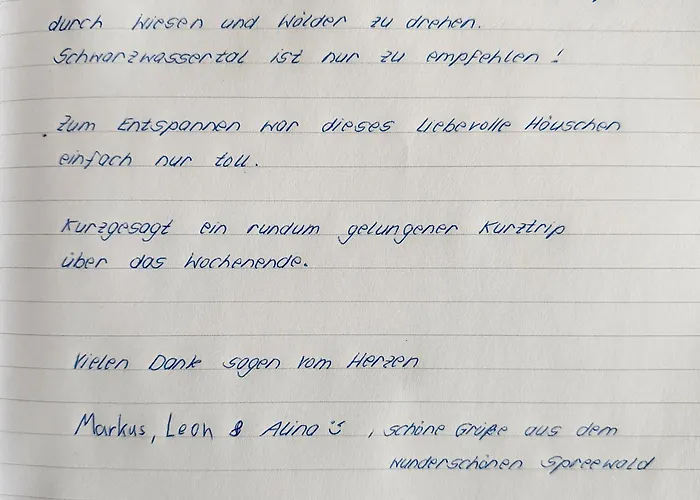 durch Wiesen und Wälder zu drehen.
Schwarzwassertal ist nur zu empfehlen !
Zum Entspannen war dieses liebevolle Häuschen
einfach nur toll.
Kurzgesagt ein rundum gelungener Kurztrip
über das Wochenende.
Vielen Dank sagen vom Herzen
Markus, Leon & Alina ü , schöne Grüße aus dem
wunderschönen Spreewald